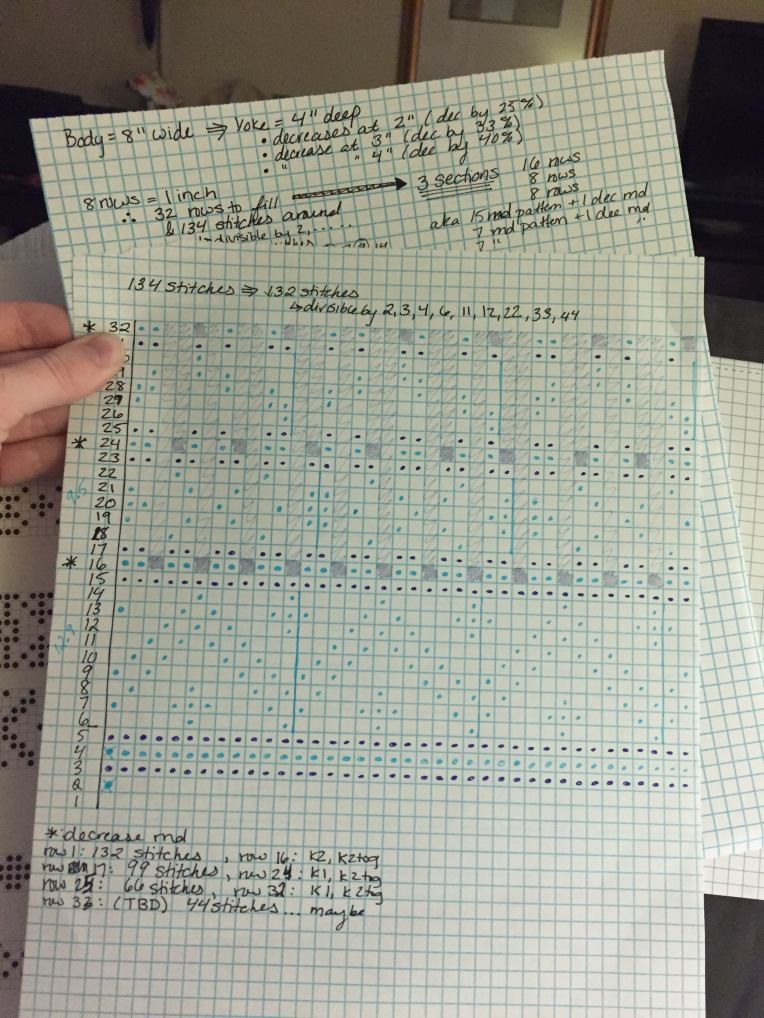 Body = 8" wide ⇒ Yoke = 4" deep
• decreases at 2" (dec by 25%)
• decrease at 3" (dec by 33%)
• " " 4" (dec by 40%)
8 rows = 1 inch → 3 sections
16 rows
8 rows
8 rows
∴ 32 rows to fill
& 134 stitches around
divisible by 2, .....
aka 15 rnd pattern + 1 dec rnd
7 rnd pattern + 1 dec rnd
7 " "
134 stitches ⇒ 132 stitches
↳ divisible by 2, 3, 4, 6, 11, 12, 22, 33, 44
* 32
28
29
26
25
* 24
23
22
21
20
19
18
17
* 16
15
14
13
12
11
10
9
8
7
6
5
4
3
2
1
*: decrease rnd
row 1: 132 stitches, row 16: K2, K2tog
row 17: 99 stitches, row 24: K1, K2tog
row 25: 66 stitches, row 32: K1, K2tog
row 33: (TBD) 44 stitches... maybe